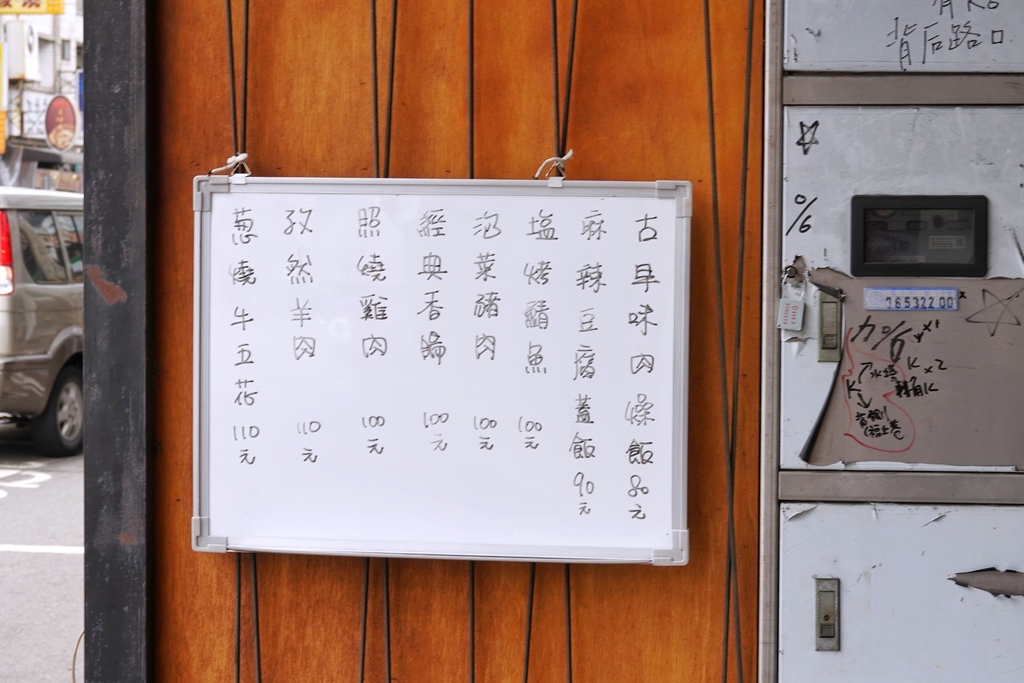 古早味肉燥飯80元
麻辣豆腐蓋飯90元
塩烤鯖魚 100元
泡菜豬肉 100元
經典香腸 100元
照燒雞肉 100元
孜然羊肉 110元
蔥燒牛五花 110元
背后路口
%6
765322 00
K x2